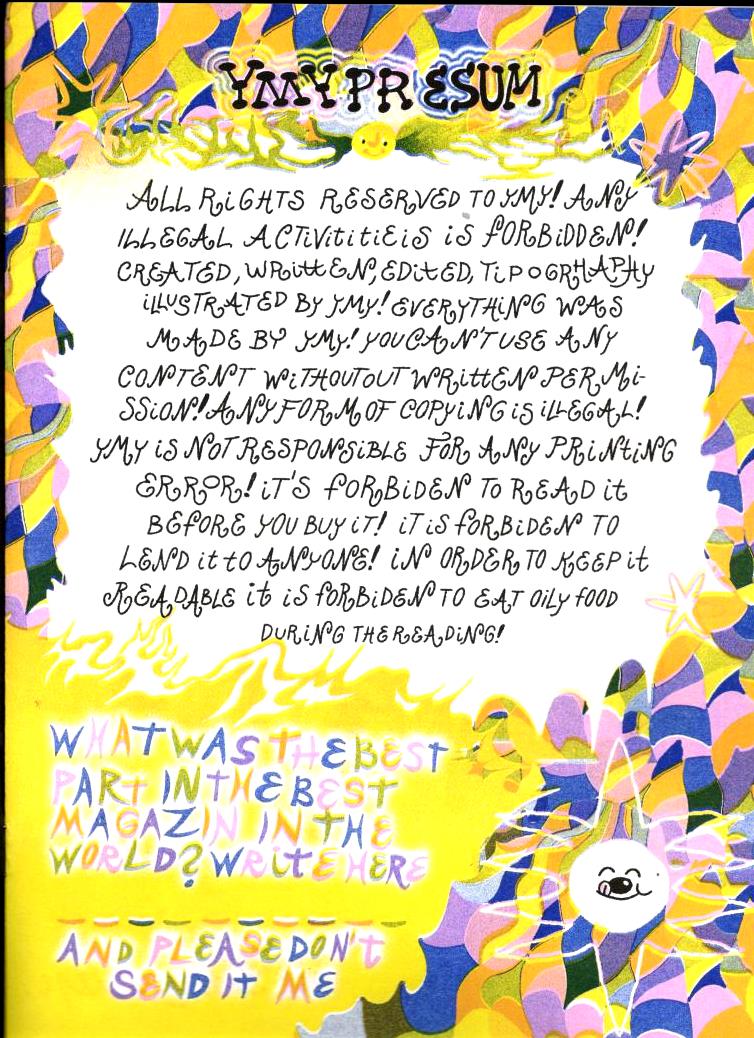 YMY PRESUM
ALL RiGHTS RESERVED TO YMY! ANY
ILLEGAL ACTiVitiTiEiS iS fORBiDDEN!
CREATED, WRittEN, EDitED, TiPOGRHAPHY
iLLUSTRATED BY YMY! EVERYTHiNG WAS
MADE BY YMY! YOU CAN'T USE ANY
CONTENT WiTHOUTOUT WRittEN PERMi-
SSiON! ANY FORM OF COPYiNG iS iLLEGAL!
YMY iS NOT RESPONSiBLE FOR ANY PRiNtiNG
ERROR! iT'S fORBiDEN TO READ it
BEFORE YOU BUY iT! iT iS fORBiDEN TO
LEND it tO ANYONE! iN ORDER TO KEEP it
READABLE it iS fORBiDEN TO EAT OiLY fOOD
DURiNG THE READiNG!
WHAT WAS THE BEST
PART IN THE BEST
MAGAZIN IN THE
WORLD? WRITE HERE
AND PLEASE DON'T
SEND IT ME